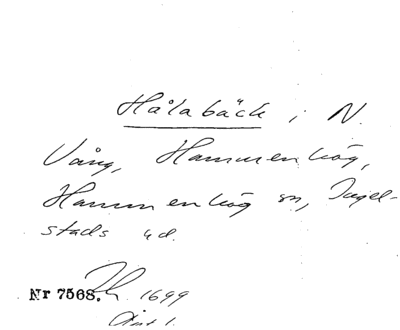 Hålabäck i N.
Vång, Hammenhög,
Hammenhög sn, Ingel-
stads hd.
1699
Nr 7568.